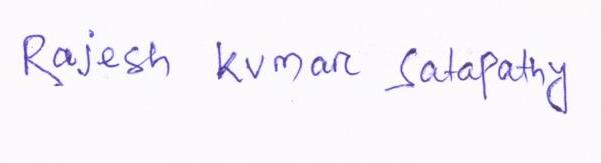 Rajesh Kumar Satapathy